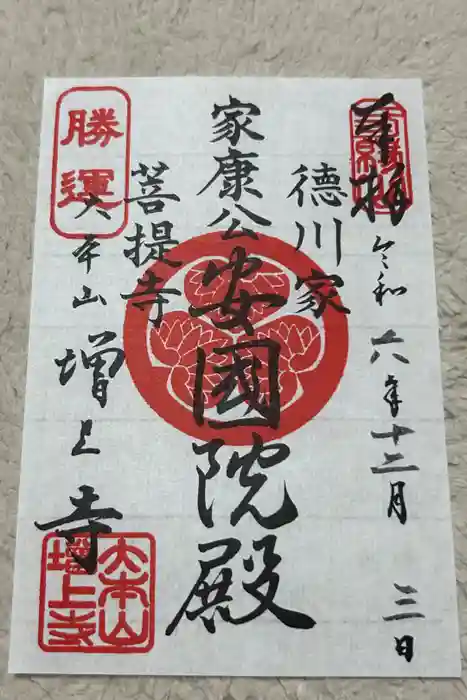 奉拝
令和六年十二月三日
德川家
家康公
安國院殿
菩提寺
勝運
大本山
増上寺
大本山
増上寺